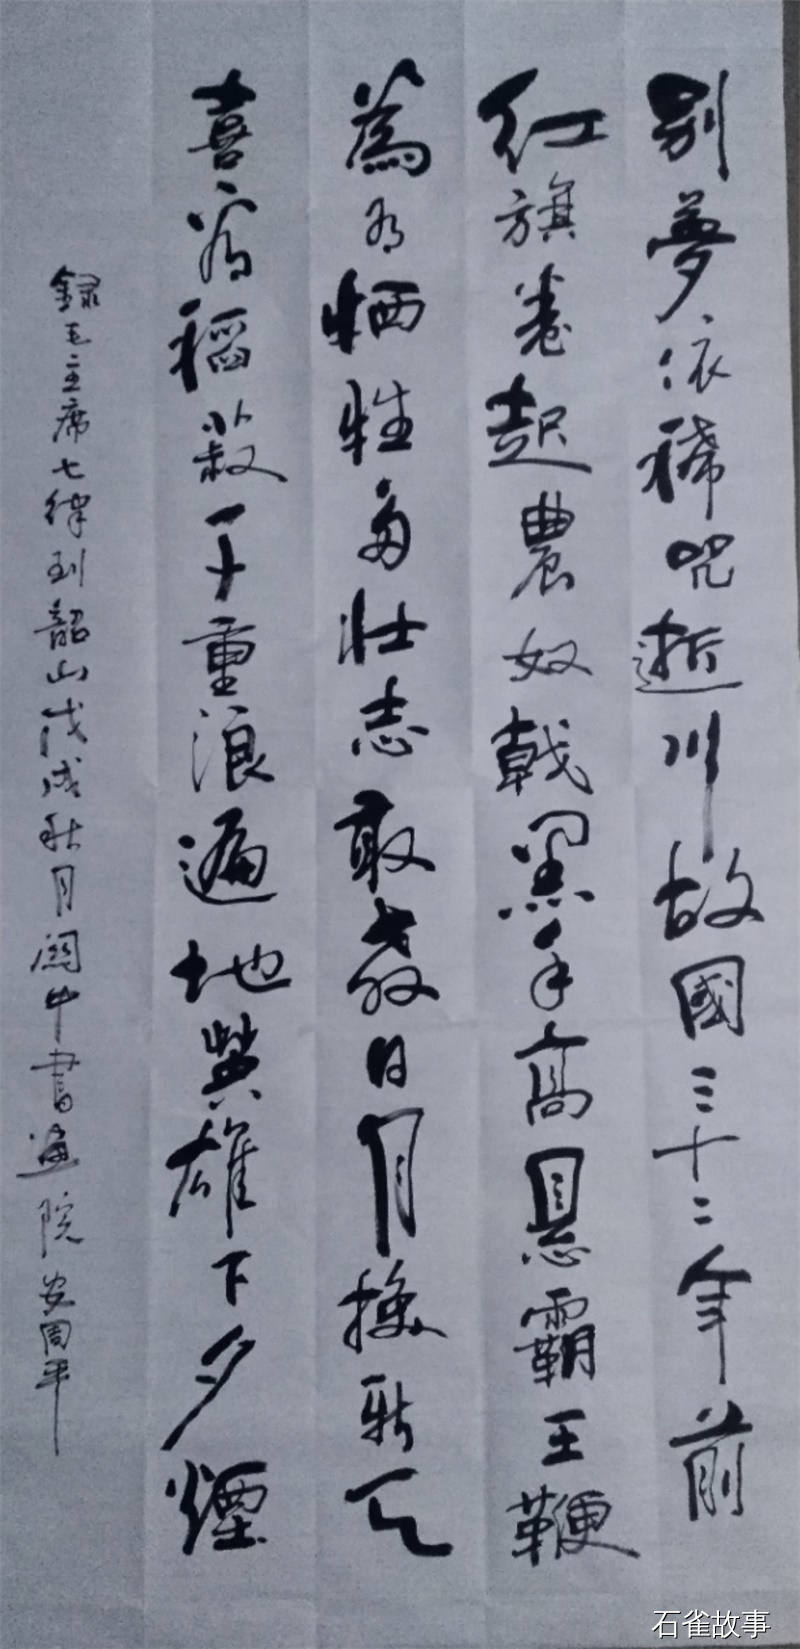 别夢依稀咒逝川故國三十二年前
红旗卷起農奴戟黑手高悬霸王鞭
為有牺牲多壮志敢教日月换新天
喜看稻菽千重浪遍地英雄下夕煙
録毛主席七律到韶山戊戌秋月關中書画院安周平
石雀故事